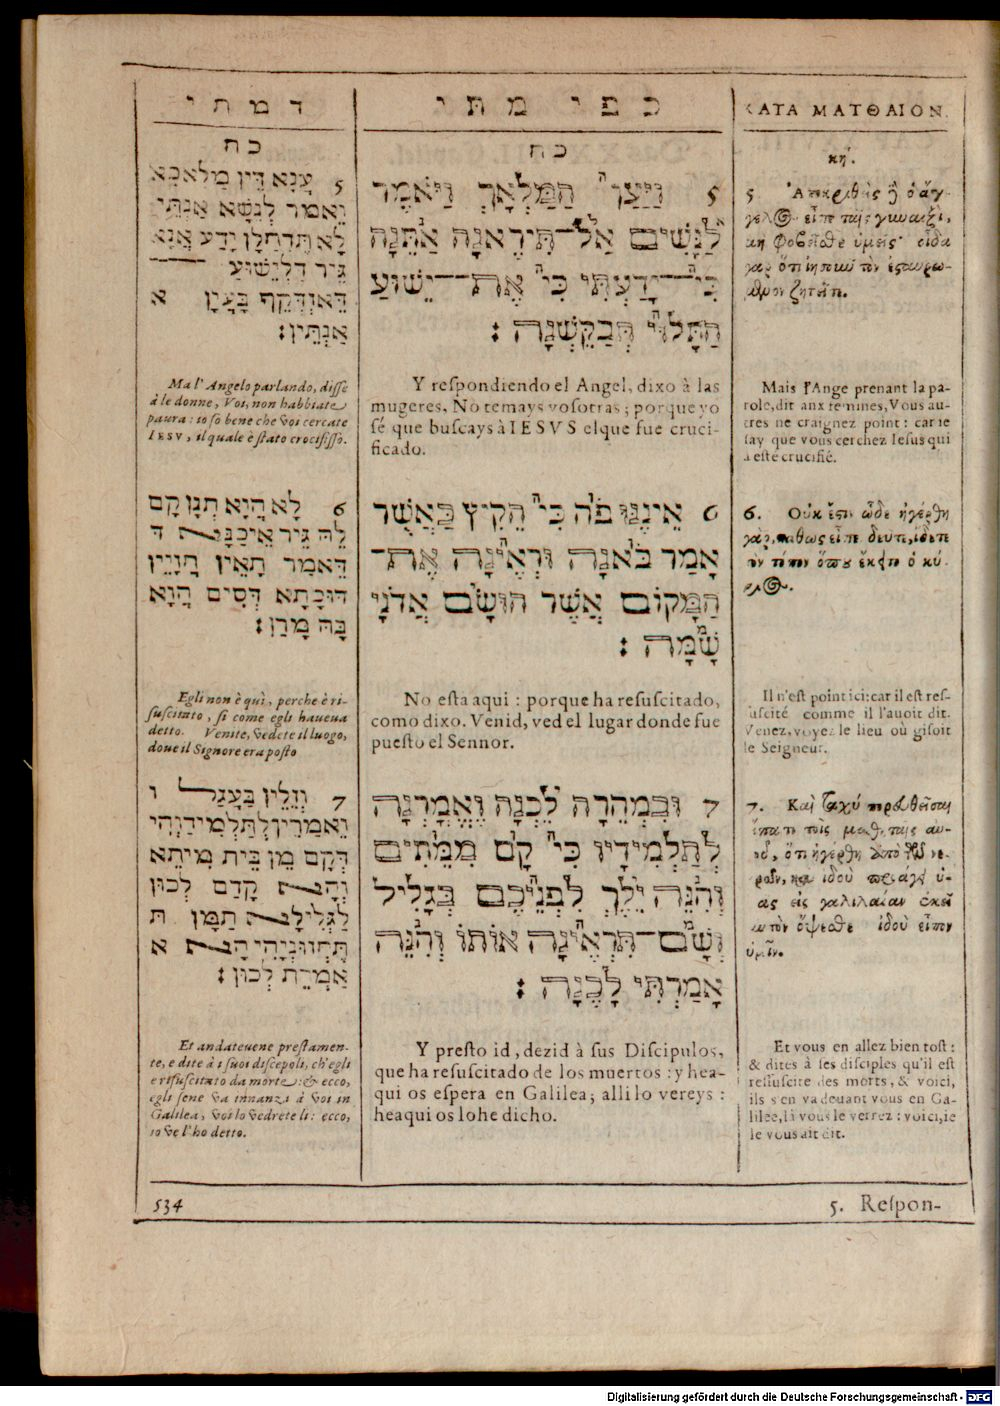 דמתי
כח
5 עֲנָא דֵּין מַלאכָא
וֶאמַר לְנֶשֵּׁא אַנְתֵּי
לָא תֶּדְחלָן יָדַע אֲנָא
גֵּיר דִלְיֵשׁוּע
דֶּאזְדְּקֵף בָּעֲיָן א
אַנְתֵּין:
Ma l'Angelo parlando, disse
à le donne, Voi, non habbiate
paura: io so bene che voi cercate
IESV, il quale è stato crocifisso.
6 לָא הֲוָא תְנָן קָם
לֵהּ גֵּיר אֵיכַנָּא ד
דֶּאמַר תָּאֵין חֲזָיֵין
דּוּכְתָא דְּסִים הֲוָא
בָּהּ מָרַן:
Egli non è quì, perche è ri-
suscitato, si come egli haueua
detto. Venite, vedete il luogo,
doue il Signore era posto
7 וְזֵלֵין בַּעֲגַל ו
וֶאמַרֵין לְתַּלְמִידַוְהִי
דְּקָם מֵן בֵּית מִיתֵא
וְהָא קָדֵם לְכוּן
לַגְלִילָא תַּמָּן ת
תֶּחזוּנָיְהִי הָא א
אֶמְרֵת לְכוּן:
Et andateuene prestamen-
te, e dite à i suoi discepoli, ch'egli
e risuscitato da morte: & ecco,
egli sene va innanzi à voi in
Galilea, voi lo vedrete li: ecco,
io ve l'ho detto.
כפי מתי
כח
5 וַיַּעַן הַמַּלְאָךְ וַיֹּאמֶר
לַנָּשִׁים אַל־תִּירֶאנָה אַתֵּנָה
כִּי־יָדַעְתִּי כִּי אֶת־יֵשׁוּעַ
הַתָּלוּי תְּבַקֵּשְׁנָה:
Y respondiendo el Angel, dixo à las
mugeres, No temays vosotras; porque yo
sé que buscays à IESVS el que fue cruci-
ficado.
6 אֵינֶנּוּ פֹּה כִּי הֵקִיץ כַּאֲשֶׁר
אָמַר בֹּאנָה וּרְאֶינָה אֶת־
הַמָּקוֹם אֲשֶׁר הוּשַׂם אֲדֹנָי
שָׁמָּה:
No esta aqui: porque ha resuscitado,
como dixo. Venid, ved el lugar donde fue
puesto el Sennor.
7 וּבִמְהֵרָה לֵכְנָה וֶאֱמָרְנָה
לְתַלְמִידָיו כִּי קָם מִמֵּתִים
וְהִנֵּה יֵלֵךְ לִפְנֵיכֶם בְּגָלִיל
וְשָׁם־תִּרְאֶינָה אוֹתוֹ וְהִנֵּה
אָמַרְתִּי לָכֶנָה:
Y presto id, dezid à sus Discipulos,
que ha resuscitado de los muertos: y hea-
qui os espera en Galilea; alli lo vereys:
heaqui os lohe dicho.
ΚΑΤΑ ΜΑΤΘΑΙΟΝ.
κή.
5 Ἀποκριθεὶς δὲ ὁ ἄγ-
γελος εἶπε ταῖς γυναιξὶ,
μὴ φοβεῖσθε ὑμεῖς· οἶδα
γὰρ ὅτι ἰησοῦν τὸν ἐσταυρω-
μένον ζητεῖτε.
Mais l'Ange prenant la pa-
role, dit aux femmes, Vous au-
tres ne craignez point: car ie
say que vous cerchez Iesus qui
a esté crucifié.
6. Οὐκ ἔστιν ὧδε ἠγέρθη
γὰρ, καθὼς εἶπε δεῦτε, ἴδετε
τὸν τόπον ὅπου ἔκειτο ὁ κύ-
ριος.
Il n'est point ici: car il est res-
suscité comme il l'auoit dit.
Venez, voyez le lieu où gisoit
le Seigneur.
7. Καὶ ταχὺ πορευθεῖσαι
εἴπατε τοῖς μαθηταῖς αὐ-
τοῦ, ὅτι ἠγέρθη ἀπὸ τῶν νε-
κρῶν, καὶ ἰδοὺ προάγει ὑ-
μᾶς εἰς γαλιλαίαν ἐκεῖ
αὐτὸν ὄψεσθε ἰδοὺ εἶπον
ὑμῖν.
Et vous en allez bien tost:
& dites à ses disciples qu'il est
ressuscite des morts, & voici,
ils s'en va deuant vous en Ga-
lilee, là vous le verrez: voici, ie
le vous ait dit.
534
5. Respon-
Digitalisierung gefördert durch die Deutsche Forschungsgemeinschaft - DFG